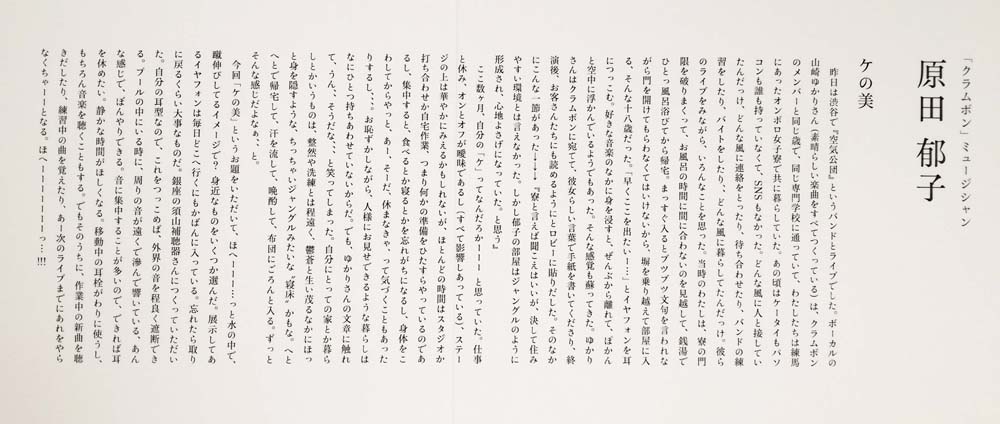 「クラムボン」ミュージシャン
原田 郁子
ケの美
昨日は渋谷で『空気公団』というバンドとライブでした。ボーカルの
山崎ゆかりさん（素晴らしい楽曲をすべてつくっている）は、クラムボン
のメンバーと同じ歳で、同じ専門学校に通っていてわたしたちは練馬
にあったオンボロ女子寮で共に暮らしていた。あの頃はケータイもパソ
コンも誰も持っていなくて、SNSもなかった。どんな風に人と接してい
たんだっけ、どんな風に連絡をとったり、待ち合わせたり、バンドの練
習をしたり、バイトをしたり、、どんな風に暮らしてたんだっけ。彼ら
のライブをみながら、いろんなことを思った。当時のわたしは、寮の門
限を破りまくって、お風呂の時間に間に合わないのを見越して、銭湯で
ひとっ風呂浴びてから帰宅。まっすぐ入るとブツブツ文句を言われな
がら門を開けてもらわなくてはいけないから、塀を乗り越えて部屋に入
る、そんな十八歳だった。「早くここを出たいー…」とイヤフォンを耳
につっこむ。好きな音楽のなかに身を浸すと、ぜんぶから離れて、ぽかん
と空中に浮かんでいるようでもあった。そんな感覚も蘇ってきた。ゆかり
さんはクラムボンに宛てて、彼女らしい言葉で手紙を書いてくださり、終
演後、お客さんたちにも読めるようにとロビーに貼りだした。そのなか
にこんな一節があった→→→『寮と言えば聞こえはいいが、決して住み
やすい環境とは言えなかった。しかし郁子の部屋はジャングルのように
形成され、心地よさげになっていた。と思う』
ここ数ヶ月、自分の「ケ」ってなんだろかーーーと思っていた。仕事
と休み、オンとオフが曖昧であるし（すべて影響しあっている）、ステー
ジの上は華やかにみえるかもしれないが、ほとんどの時間はスタジオか
打ち合わせか自宅作業、つまり何かの準備をひたすらやっているのであ
るし、集中すると、食べるとか寝るとかを忘れがちになるし、身体をこ
わしてからやっと、あー、そーだ、休まなきゃ、って気づくこともあった
りするし、、、お恥ずかしながら、人様にお見せできるような暮らしは
なにひとつ持ちあわせていないからだ。でも、ゆかりさんの文章に触れ
て、うん、、そうだな、、と笑ってしまった。自分にとっての家とか暮ら
しとかいうものは、整然や洗練とは程遠く、鬱蒼と生い茂るなかにほっ
と身を隠すような、ちっちゃいジャングルみたいな“寝床”かもな。へと
へとで帰宅して、汗を流して、晩酌して、布団にごろんと入る。ずっと
そんな感じだよなぁ、、と。
今回「ケの美」というお題をいただいて、ほへーーー…っと水の中で、
蹴伸びしてるイメージで？ 身近なものをいくつか選んだ。展示してあ
るイヤフォンは毎日どこへ行くにもかばんに入っている。忘れたら取り
に戻るくらい大事なものだ。銀座の須山補聴器さんにつくっていただい
た。自分の耳型なので、これをつっこめば、外界の音を程良く遮断でき
る。プールの中にいる時に、周りの音が遠くで滲んで響いている、あん
な感じで、ぼんやりできる。音に集中することが多いので、できれば耳
を休めたい。静かな時間がほしくなる。移動中の耳栓がわりに使うし、
もちろん音楽を聴くこともする。でもそのうちに、作業中の新曲を聴
きだしたり、練習中の曲を覚えたり、あー次のライブまでにあれをやら
なくちゃーーとなる。ほへーーーーーーーっ…!!!!